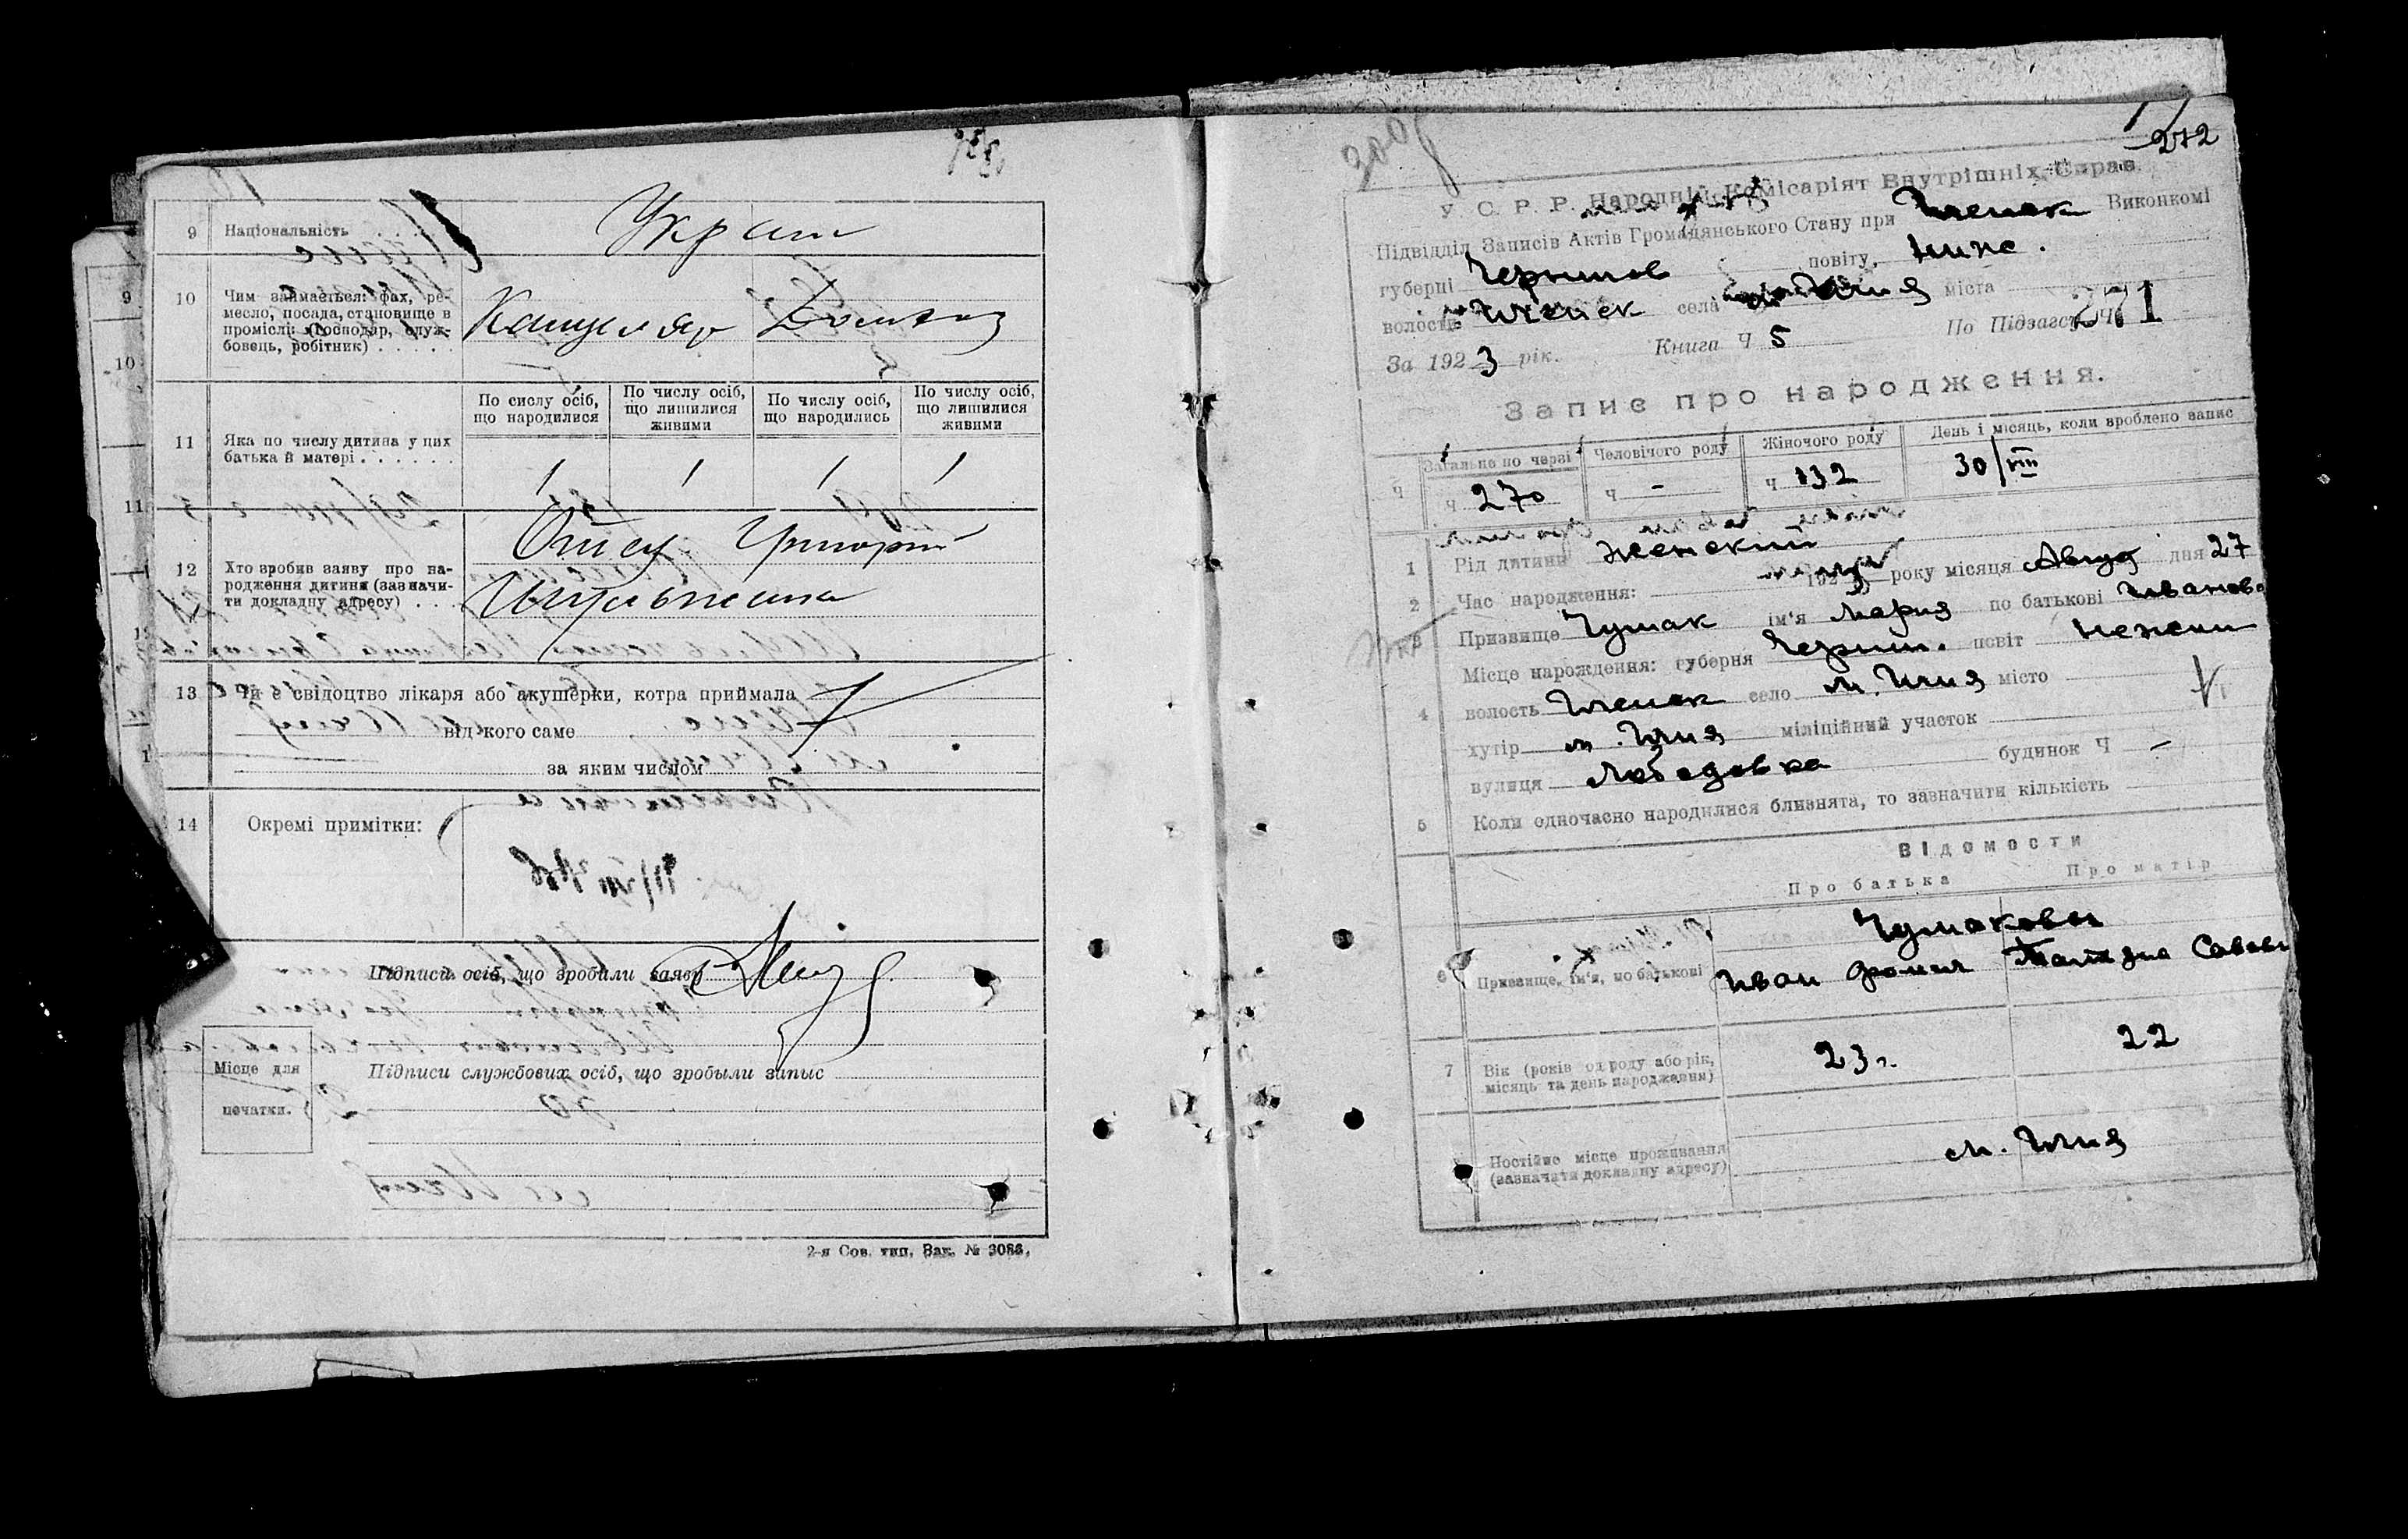 9 Національність . . . Украин
10 Чим займається: фах, ре-
месло, посада, становище в
промислі: (господар, служ-
бовець, робітник) . . . . .
Канцеляр Домаш
11 Яка по числу дитина у цих
батька й матері . . . . . .
По сислу осіб,
що народилися
По числу осіб,
що лишилися
живими
По числу осіб,
що народились
По числу осіб,
що лишилися
живими
1 1 1 1
12 Хто зробив заяву про на-
родження дитини (зазначи-
ти докладну адресу) . . .
Отец Григорий
13 Чи є свідоцтво лікаря або акушерки, котра приймала
від кого саме
за яким числом
14 Окремі примітки:
Підписи осіб, що зробили заяву
Місце для
печатки.
Підписи службових осіб, що зробыли запыс
2-я Сов. тип. Зак. № 3086.
272
У. С. Р. Р. Народній Комісаріят Внутрішніх Справ.
Підвідділ Записів Актів Громадянського Стану при Иченск Виконкомі
губерні Чернигов повіту, Ниже.
волость Иченск села м. Ичня міста
За 1923 рік. Книга Ч 5 По Підзагс Ч 271
Запис про народження.
Ч
Загальне по черзі
Человічого роду
Жіночого роду
День і місяць, коли зроблено запис
ч 270 ч - ч 132 30/VIII
1 Рід дитини женский
2 Час народження: 1923 року місяця Август дня 27
3 Призвище Чумак ім'я Мария по батькові Ивановна
4 Місце нарождення: губерня Черниг. повіт Нежени
волость Иченск село м. Ичня місто
хутір м. Ичня міліційний участок
вулиця Лебедовка будинок Ч -
5 Коли одночасно народилися близнята, то зазначити кількість
Відомости
Про батька Про матір
Чумаковы
6 Призвище, ім'я, по батькові Иван Фомич Татяна Савови
7 Вік (років од роду або рік,
місяць та день народження)
23 г. 22
Постійне місце проживання
(зазначати докладну адресу)
м. Ичня